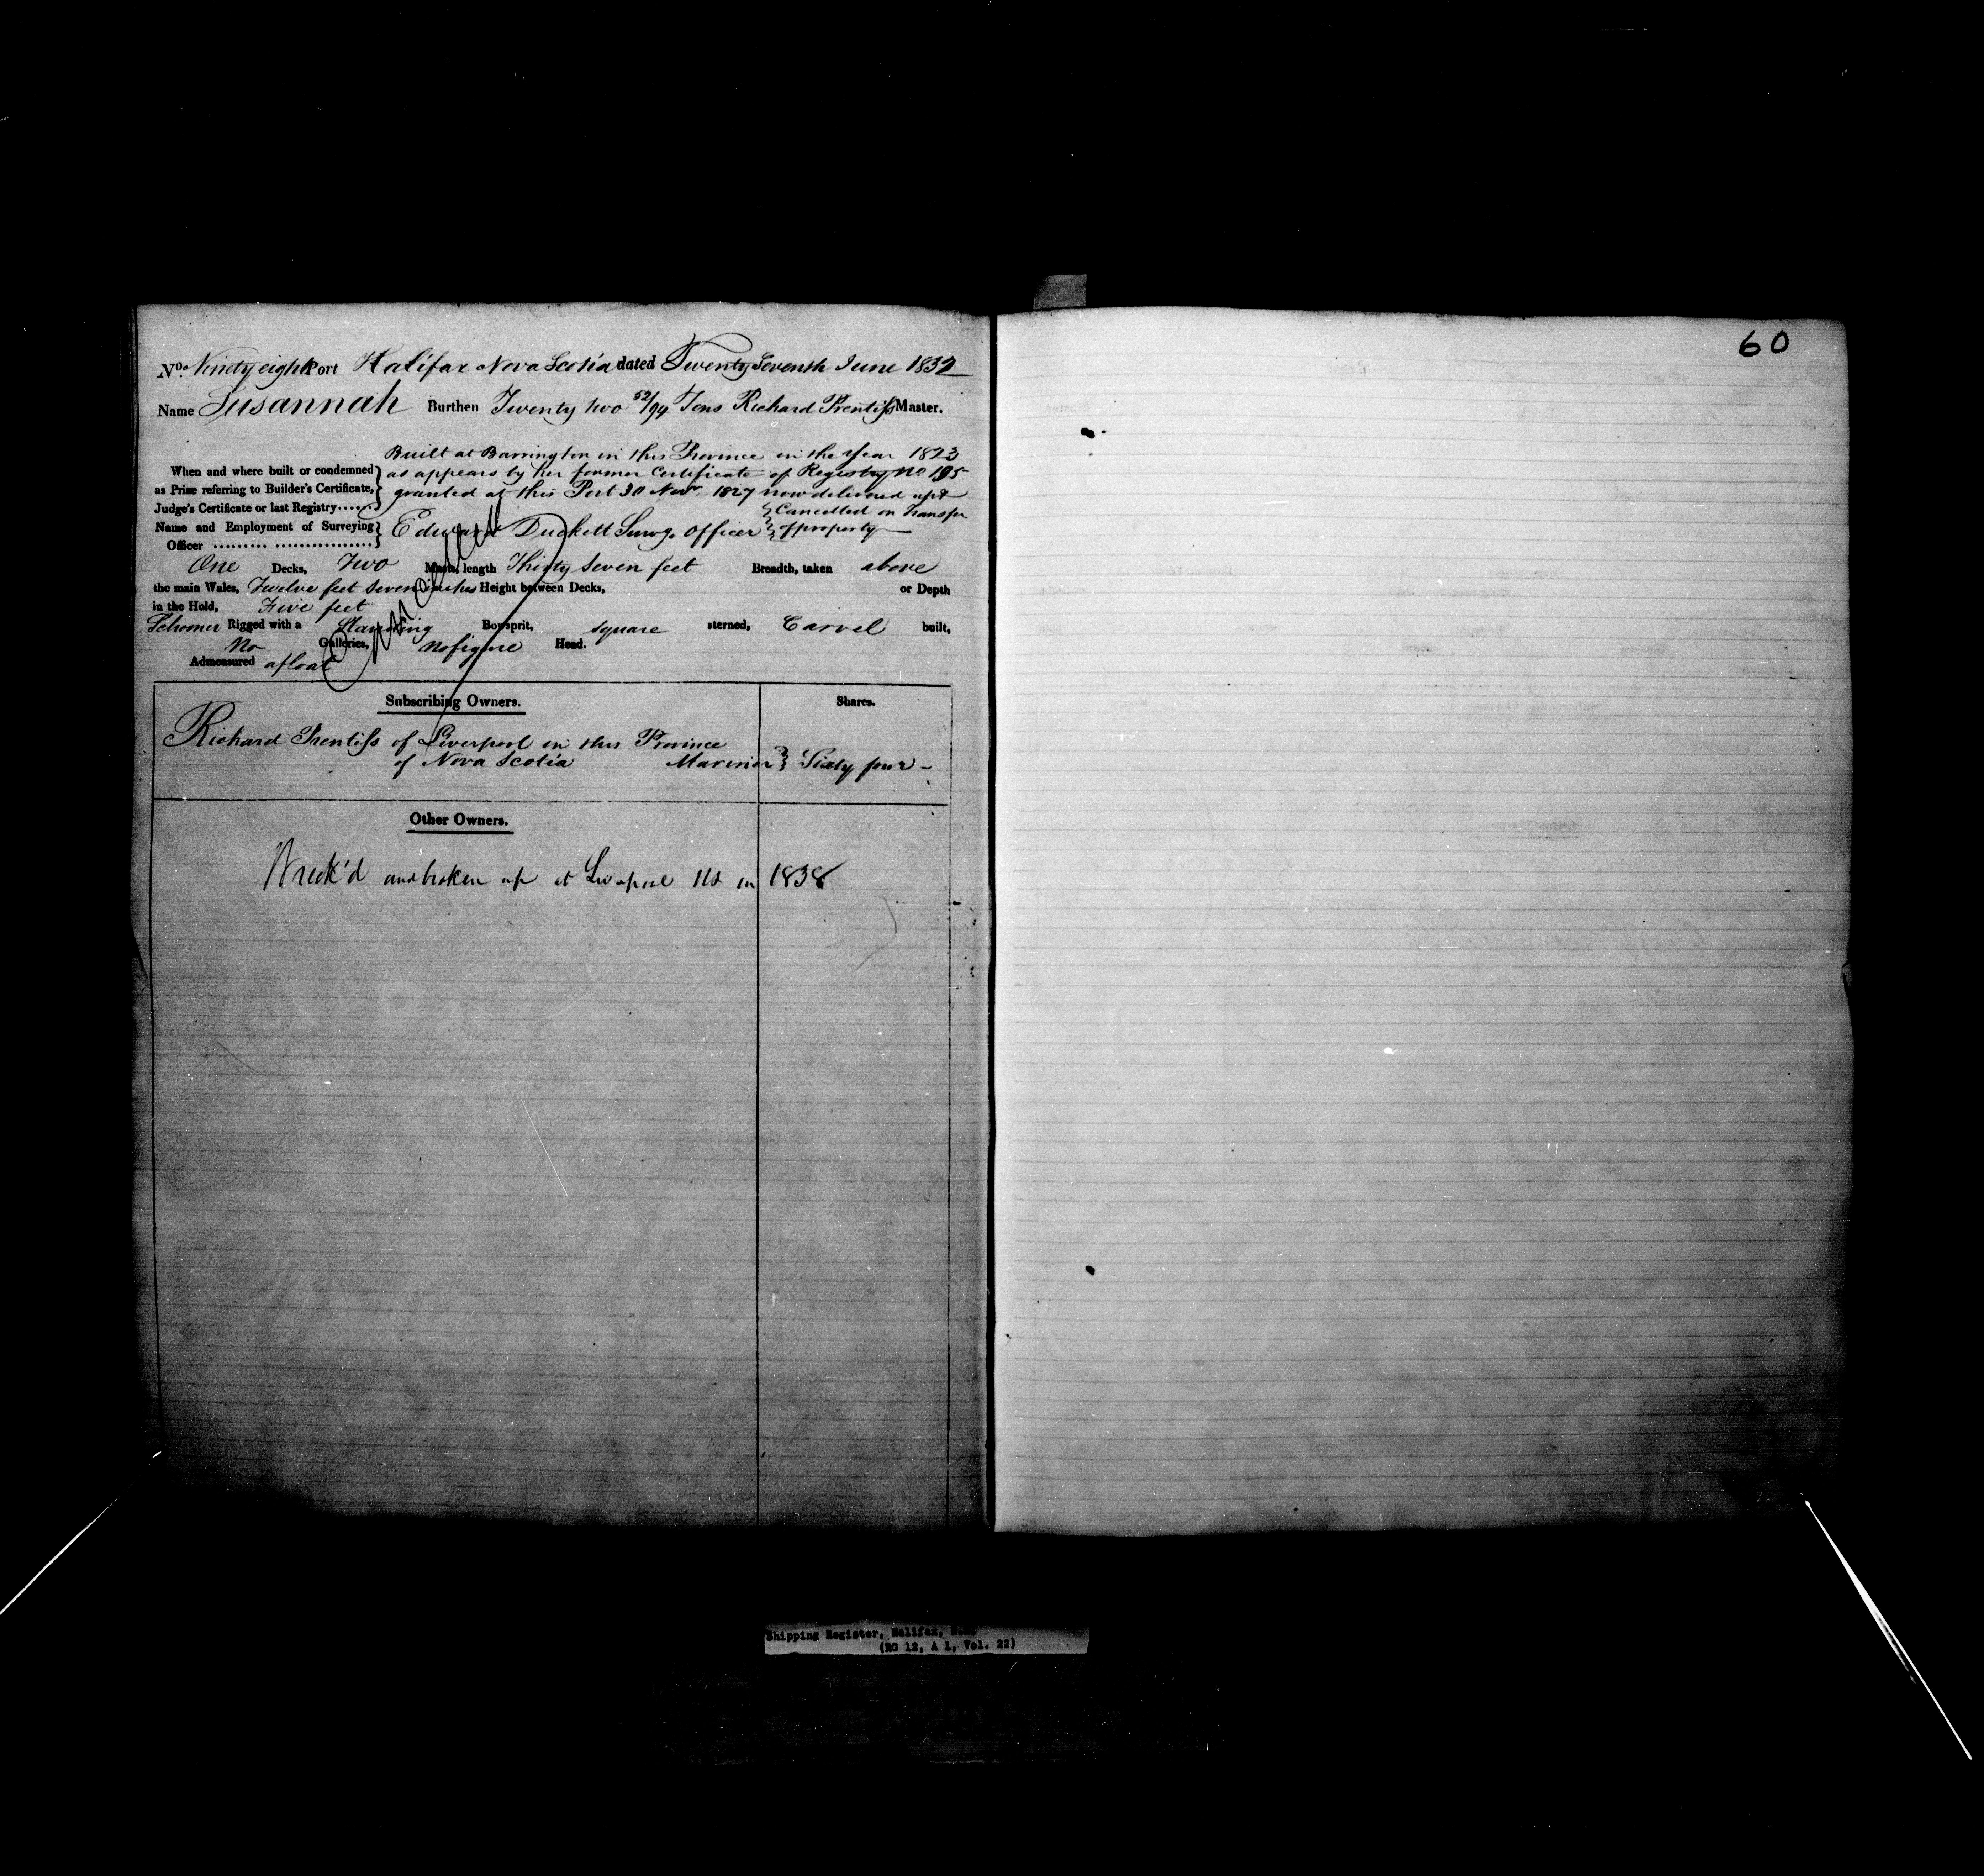 No. Ninety eight Port Halifax Nova Scotia dated Twenty Seventh June 1832
Name Susannah Burthen Twenty two 52/94 Tons Richard Prentiss Master.
Built at Barrington in this Province in the Year 1823
When and where built or condemned as appears by her former Certificate of Registry No 195
as Prize referring to Builder's Certificate, granted at this Port 30 Novr 1827 now delivered up &
Judge's Certificate or last Registry...... Cancelled on Transfer
Name and Employment of Surveying Edward Duckett Survg. Officer of property
Officer .......... ..................
One Decks, Two Masts, length Thirty Seven feet Breadth, taken above
the main Wales, Twelve feet Seven inches Height between Decks, or Depth
in the Hold, Five feet
Schooner Rigged with a Standing Bowsprit, square sterned, Carvel built,
No Galleries, no figure Head.
Admeasured afloat
Cancelled
Subscribing Owners. Shares.
Richard Prentiss of Liverpool in this Province
of Nova Scotia Mariner Sixty four
Other Owners.
Wreck'd and broken up at Liverpool NS in 1838
60
Shipping Register, Halifax, N.S.
(RG 12, A 1, Vol. 22)